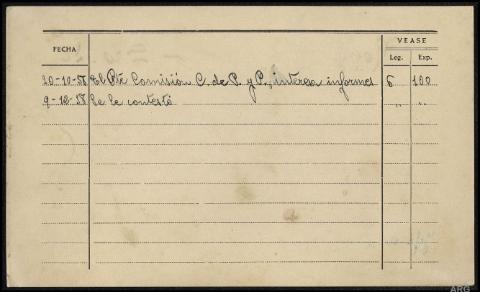 VEASE
FECHA Leg. Exp.
20-10-58 El Pte Comisión C. de P. y P., interesa informes 6 100
9-12-58 Se le contestó " "
ARG